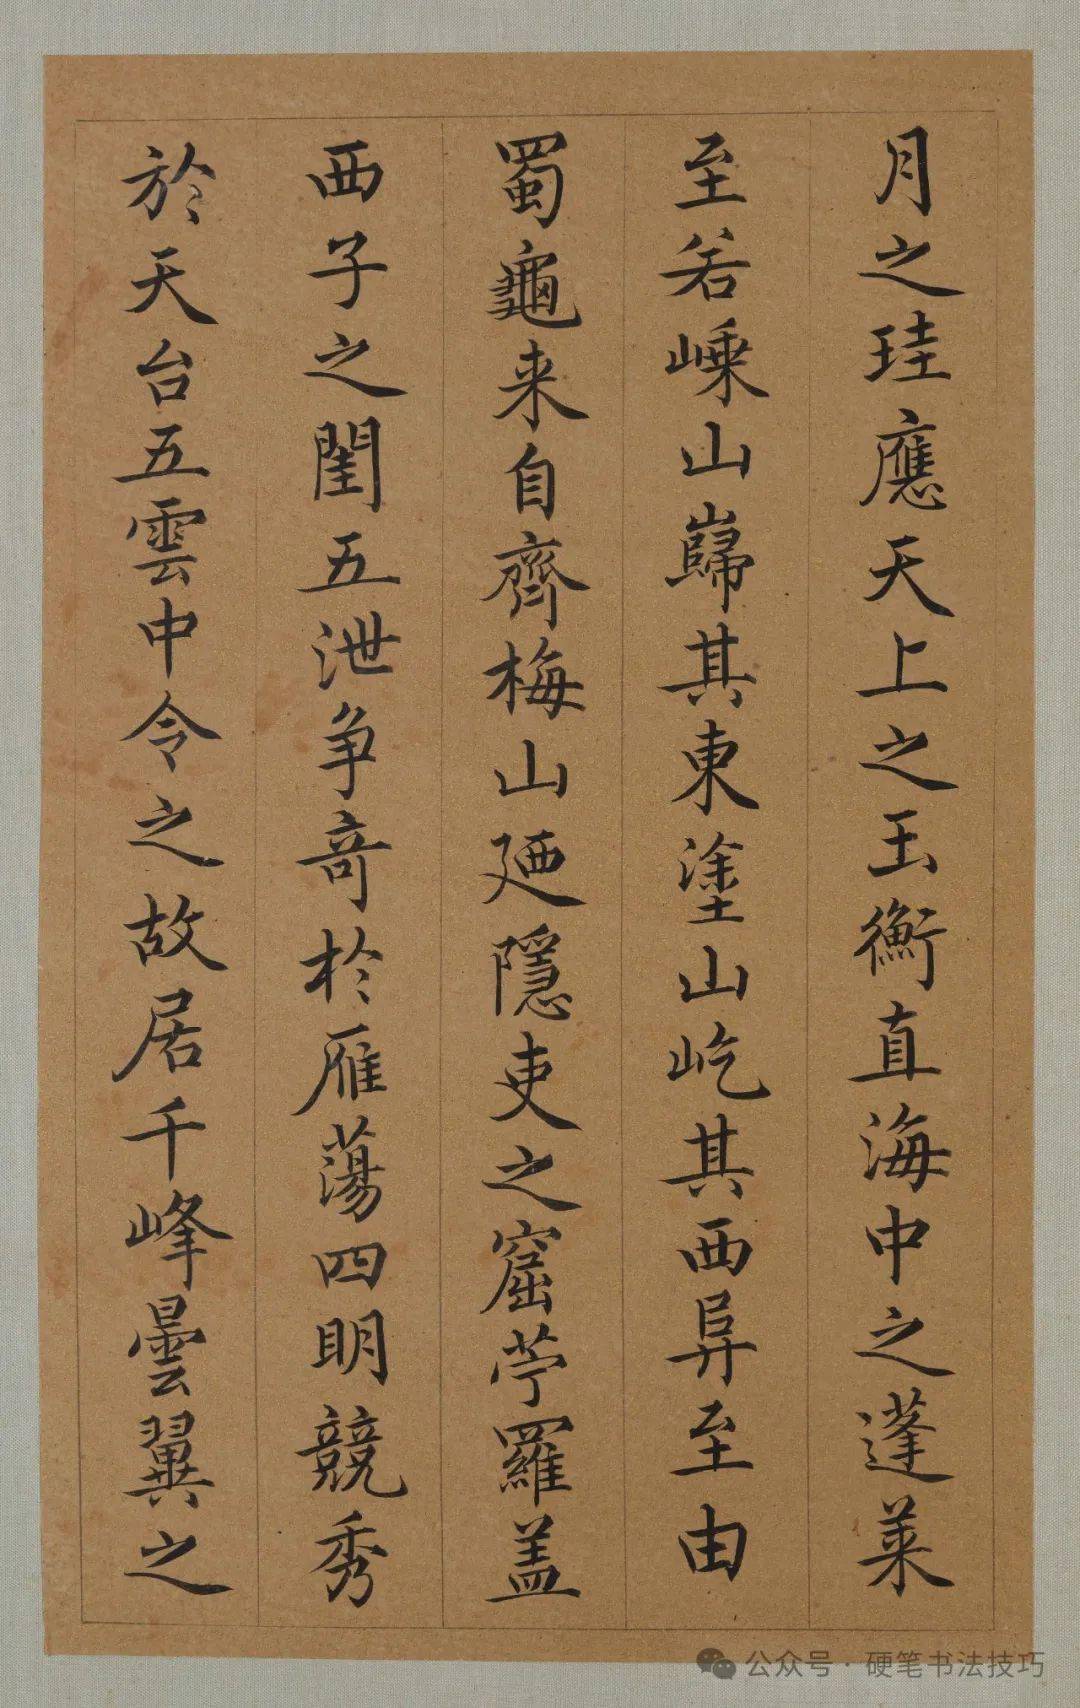 月之珪應天上之玉衡直海中之蓬莱
至若嵊山巋其東塗山屹其西舁至由
蜀龜来自齊梅山廼隱吏之窟苧羅盖
西子之閨五泄争竒於雁蕩四明競秀
於天台五雲中令之故居千峰曇翼之
公众号·硬笔书法技巧